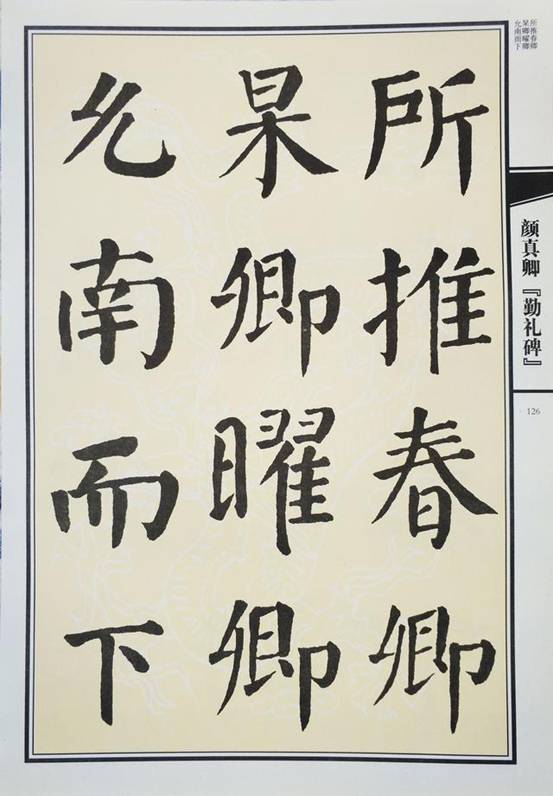 所推春卿
杲卿曜卿
允南而下
所推春卿
杲卿曜卿
允南而下
颜真卿『勤礼碑』
126